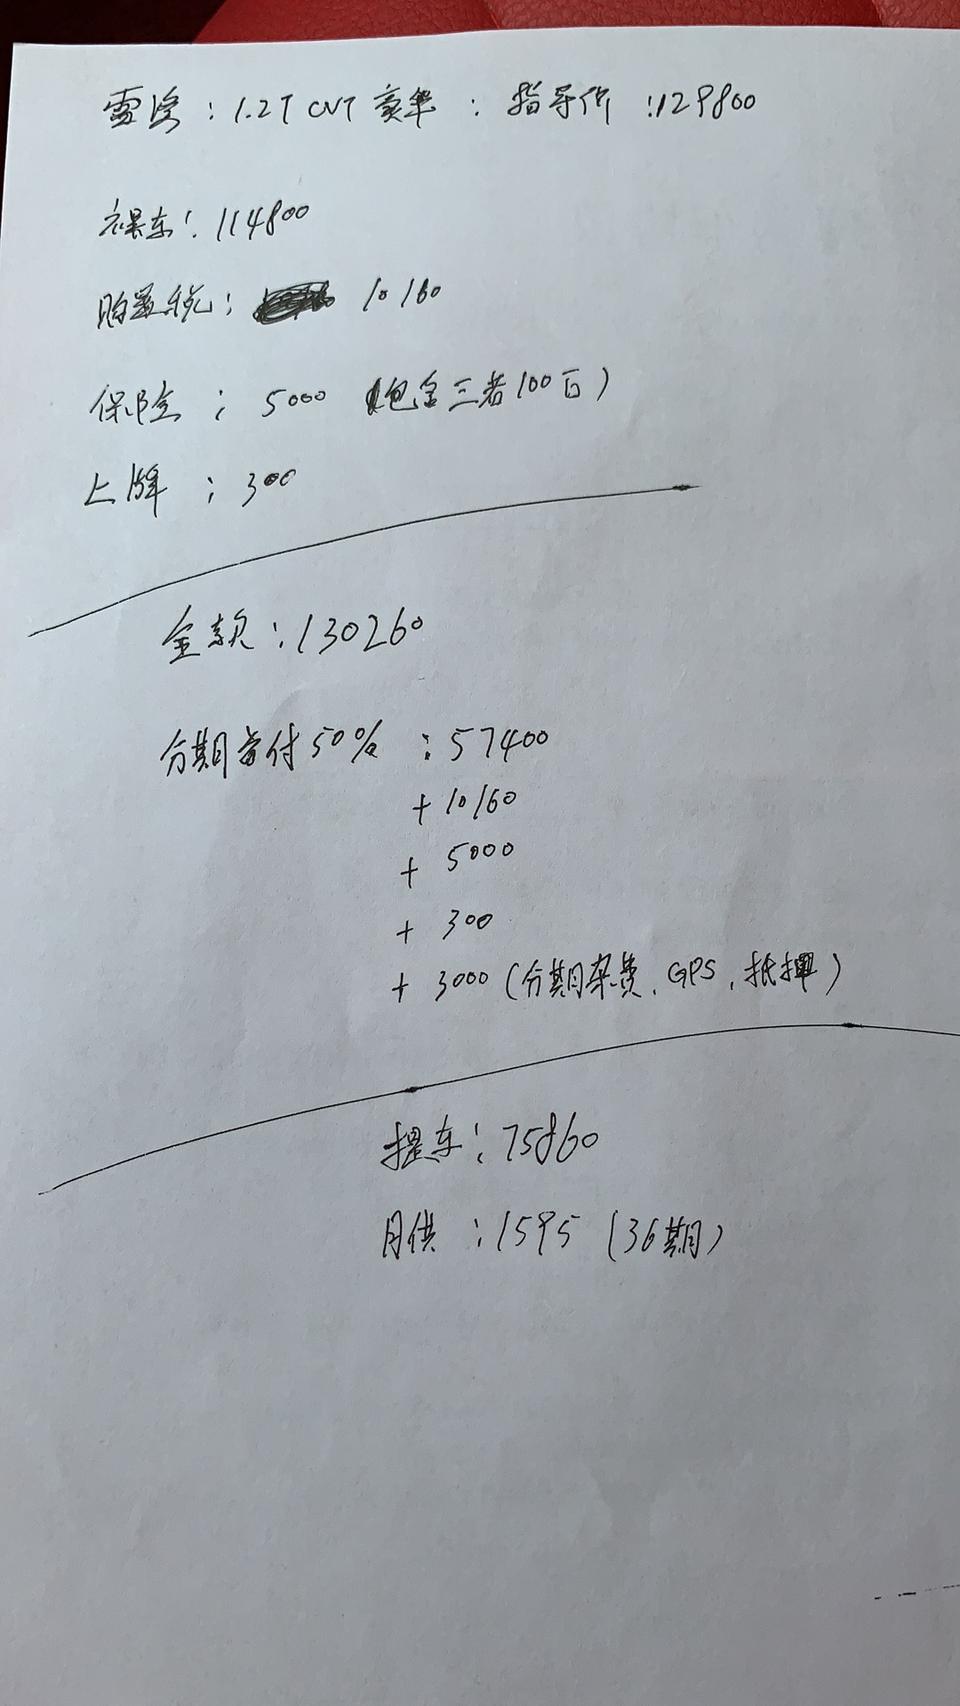 雷凌：1.2T CVT 豪华：指导价：129800
裸车：114800
购置税：10160
保险：5000（包全三者100百）
上牌：300
全款：130260
分期首付50%：57400
+ 10160
+ 5000
+ 300
+ 3000（分期杂费、GPS、抵押）
提车：75860
月供：1595（36期）